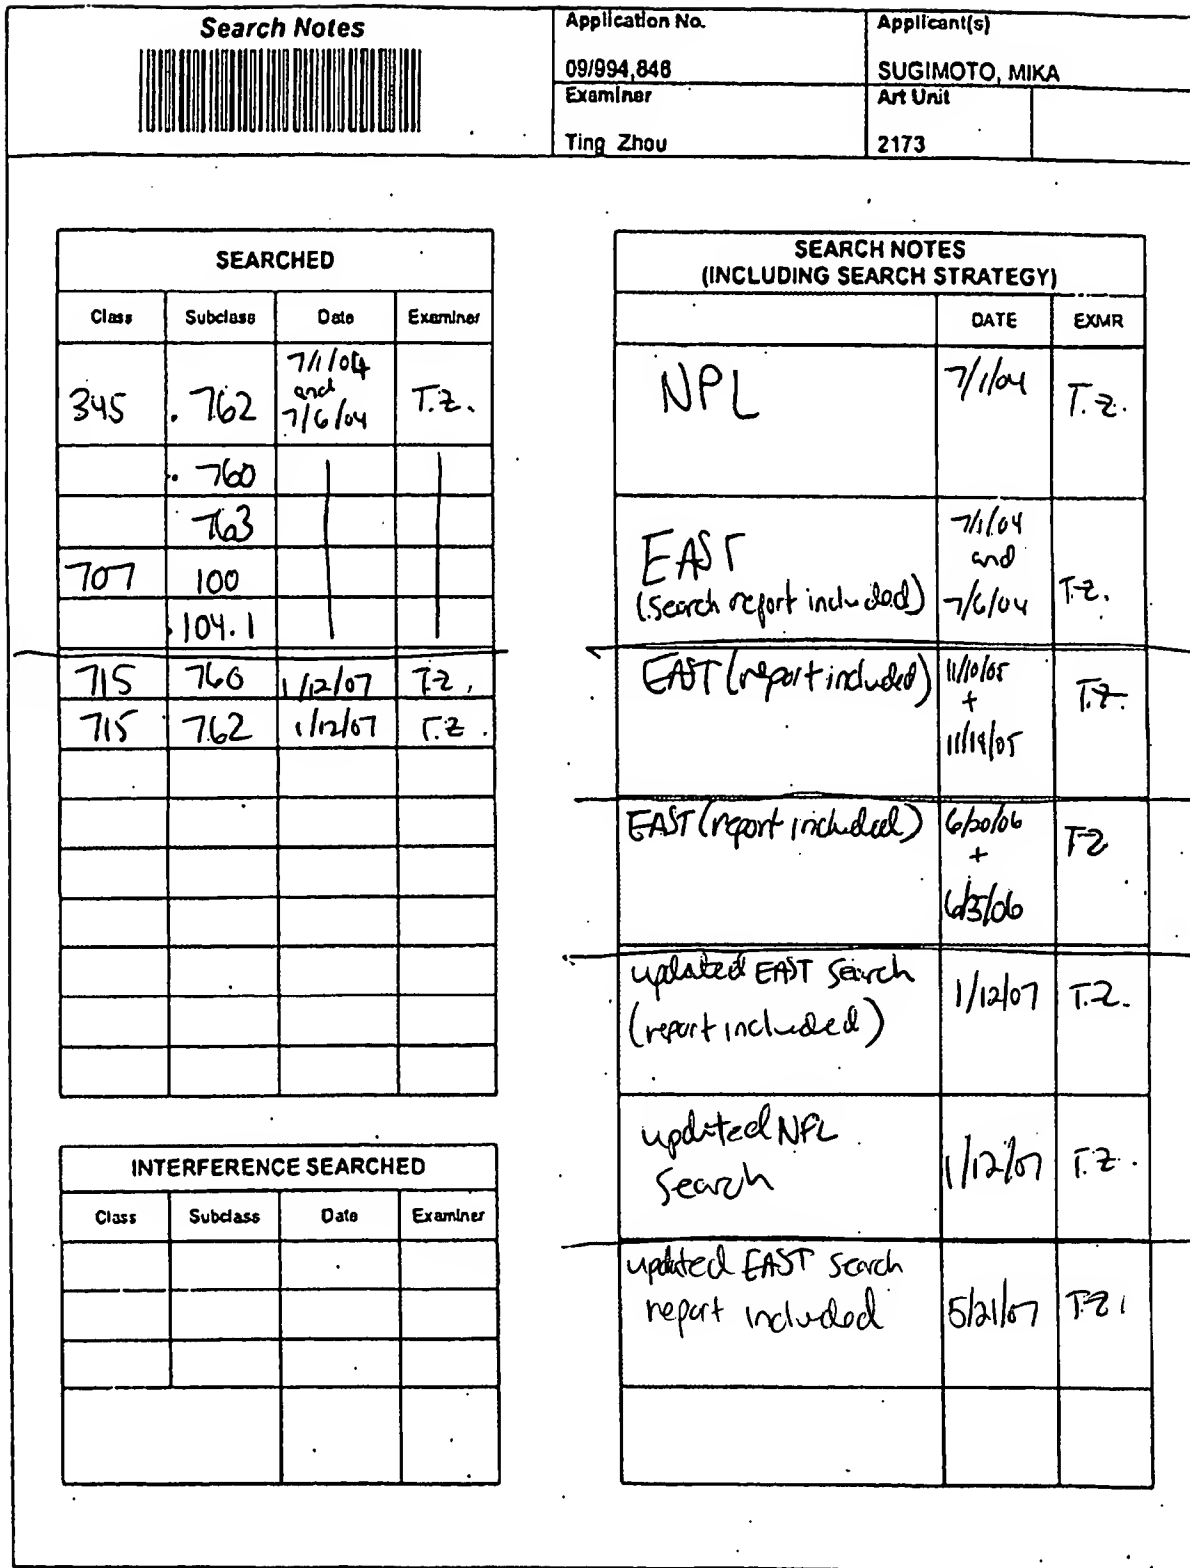 Search Notes
Application No.
09/994,846
Applicant(s)
SUGIMOTO, MIKA
Examiner
Ting Zhou
Art Unit
2173
SEARCHED
Class Subclass Date Examiner
345 762 7/1/04 and 7/6/04 T.Z.
760
763
707 100
104.1
715 760 1/12/07 T.Z.
715 762 1/12/07 T.Z.
INTERFERENCE SEARCHED
Class Subclass Date Examiner
SEARCH NOTES
(INCLUDING SEARCH STRATEGY)
DATE EXMR
NPL 7/1/04 T.Z.
EAST
(search report included)
7/1/04
and
7/6/04
T.Z.
EAST (report included)
11/10/05
+
T.Z.
EAST (report included)
6/20/06
+
T.Z
updated EAST search
(report included)
1/12/07 T.Z.
updated NPL
search
1/12/07 T.Z.
updated EAST search
report included
5/21/07 T.Z.